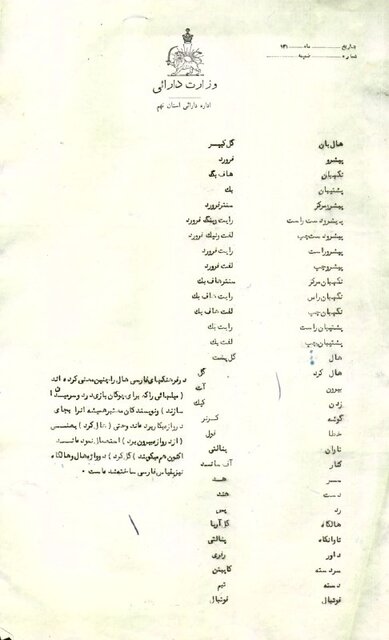 تاریخ ..... ماه ..... ۱۳۱
شماره ..... ضمیمه .....
وزارت دارائی
اداره دارائی استان نهم
هال بان گل کیپر
پیشرو فرورد
نگهبان هاف بگ
پشتیبان بك
پیشرو مرکز سنتر فرورد
پیشرو دست راست رایت وینگ فرورد
پیشرو دست چپ لفت ونیگ فرورد
پیشرو راست رایت فرورد
پیشرو چپ لفت فرورد
نگهبان مرکز سنتر هاف بك
نگهبان راس رایت هاف بك
نگهبان چپ لفت هاف بك
پشتیبان راست رایت بك
پشتیبان چپ لفت بك
هال گل پشت
هال کرد گل
بیرون آت
زدن کیك
گوشه کرنر
خطا فول
تاوان پنالتی
کنار آف ساید
سر هد
دست هند
رد پس
هالگاه گل آریا
تاوانگاه پنالتی
داور رفری
سردسته کاپیتن
دسته تیم
فوتبال فوتبال
در فرهنگهای فارسی هال را چنین معنی کرده اند
( میلهائی راکه برای چوگان بازی در دو سر میدان
سازند ) نویسندگان معتبر همیشه آنرا بجای
دروازه بکار برده اند و حتی ( هال کرد ) بمعنی
( از دروازه بیرون برد ) استعمال نموده مانند
اکنون هم میگویند ( گل کرد ) دو واژه هال و هالگاه
نیز بقیاس فارسی ساخته شده است